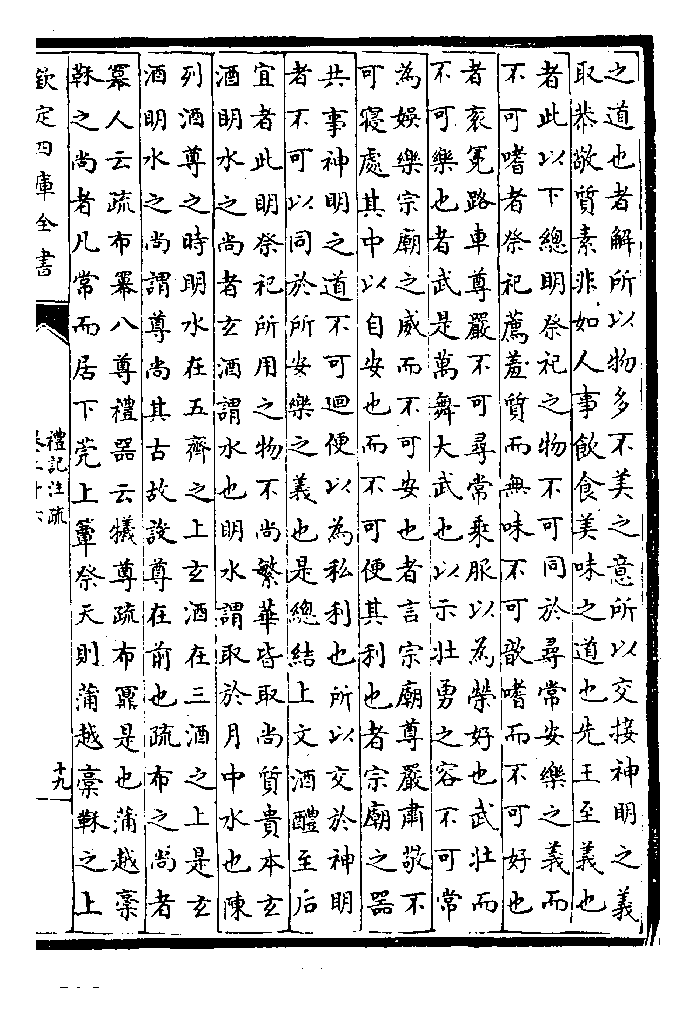 之道也者解所以物多不美之意所以交接神明之義
取恭敬質素非如人事飲食美味之道也先王至義也
者此以下總明祭祀之物不可同於尋常安樂之義而
不可嗜者祭祀薦羞質而無味不可歆嗜而不可好也
者衮冕路車尊嚴不可尋常乗服以為榮好也武壯而
不可樂也者武是萬舞大武也以示壯勇之容不可常
為娛樂宗廟之威而不可安也者言宗廟尊嚴肅敬不
可寢處其中以自安也而不可便其利也者宗廟之器
共事神明之道不可迴便以為私利也所以交於神明
者不可以同於所安樂之義也是總結上文酒醴至后
宜者此明祭祀所用之物不尚繁華皆取尚質貴本玄
酒明水之尚者玄酒謂水也明水謂取於月中水也陳
列酒尊之時明水在五齊之上玄酒在三酒之上是玄
酒明水之尚謂尊尚其古故設尊在前也疏布之尚者
冪人云疏布冪八尊禮器云犧尊疏布鼏是也蒲越稾
鞂之尚者凡常而居下莞上簟祭天則蒲越稾鞂之上
欽定四庫全書
禮記注疏
卷二十六
十九